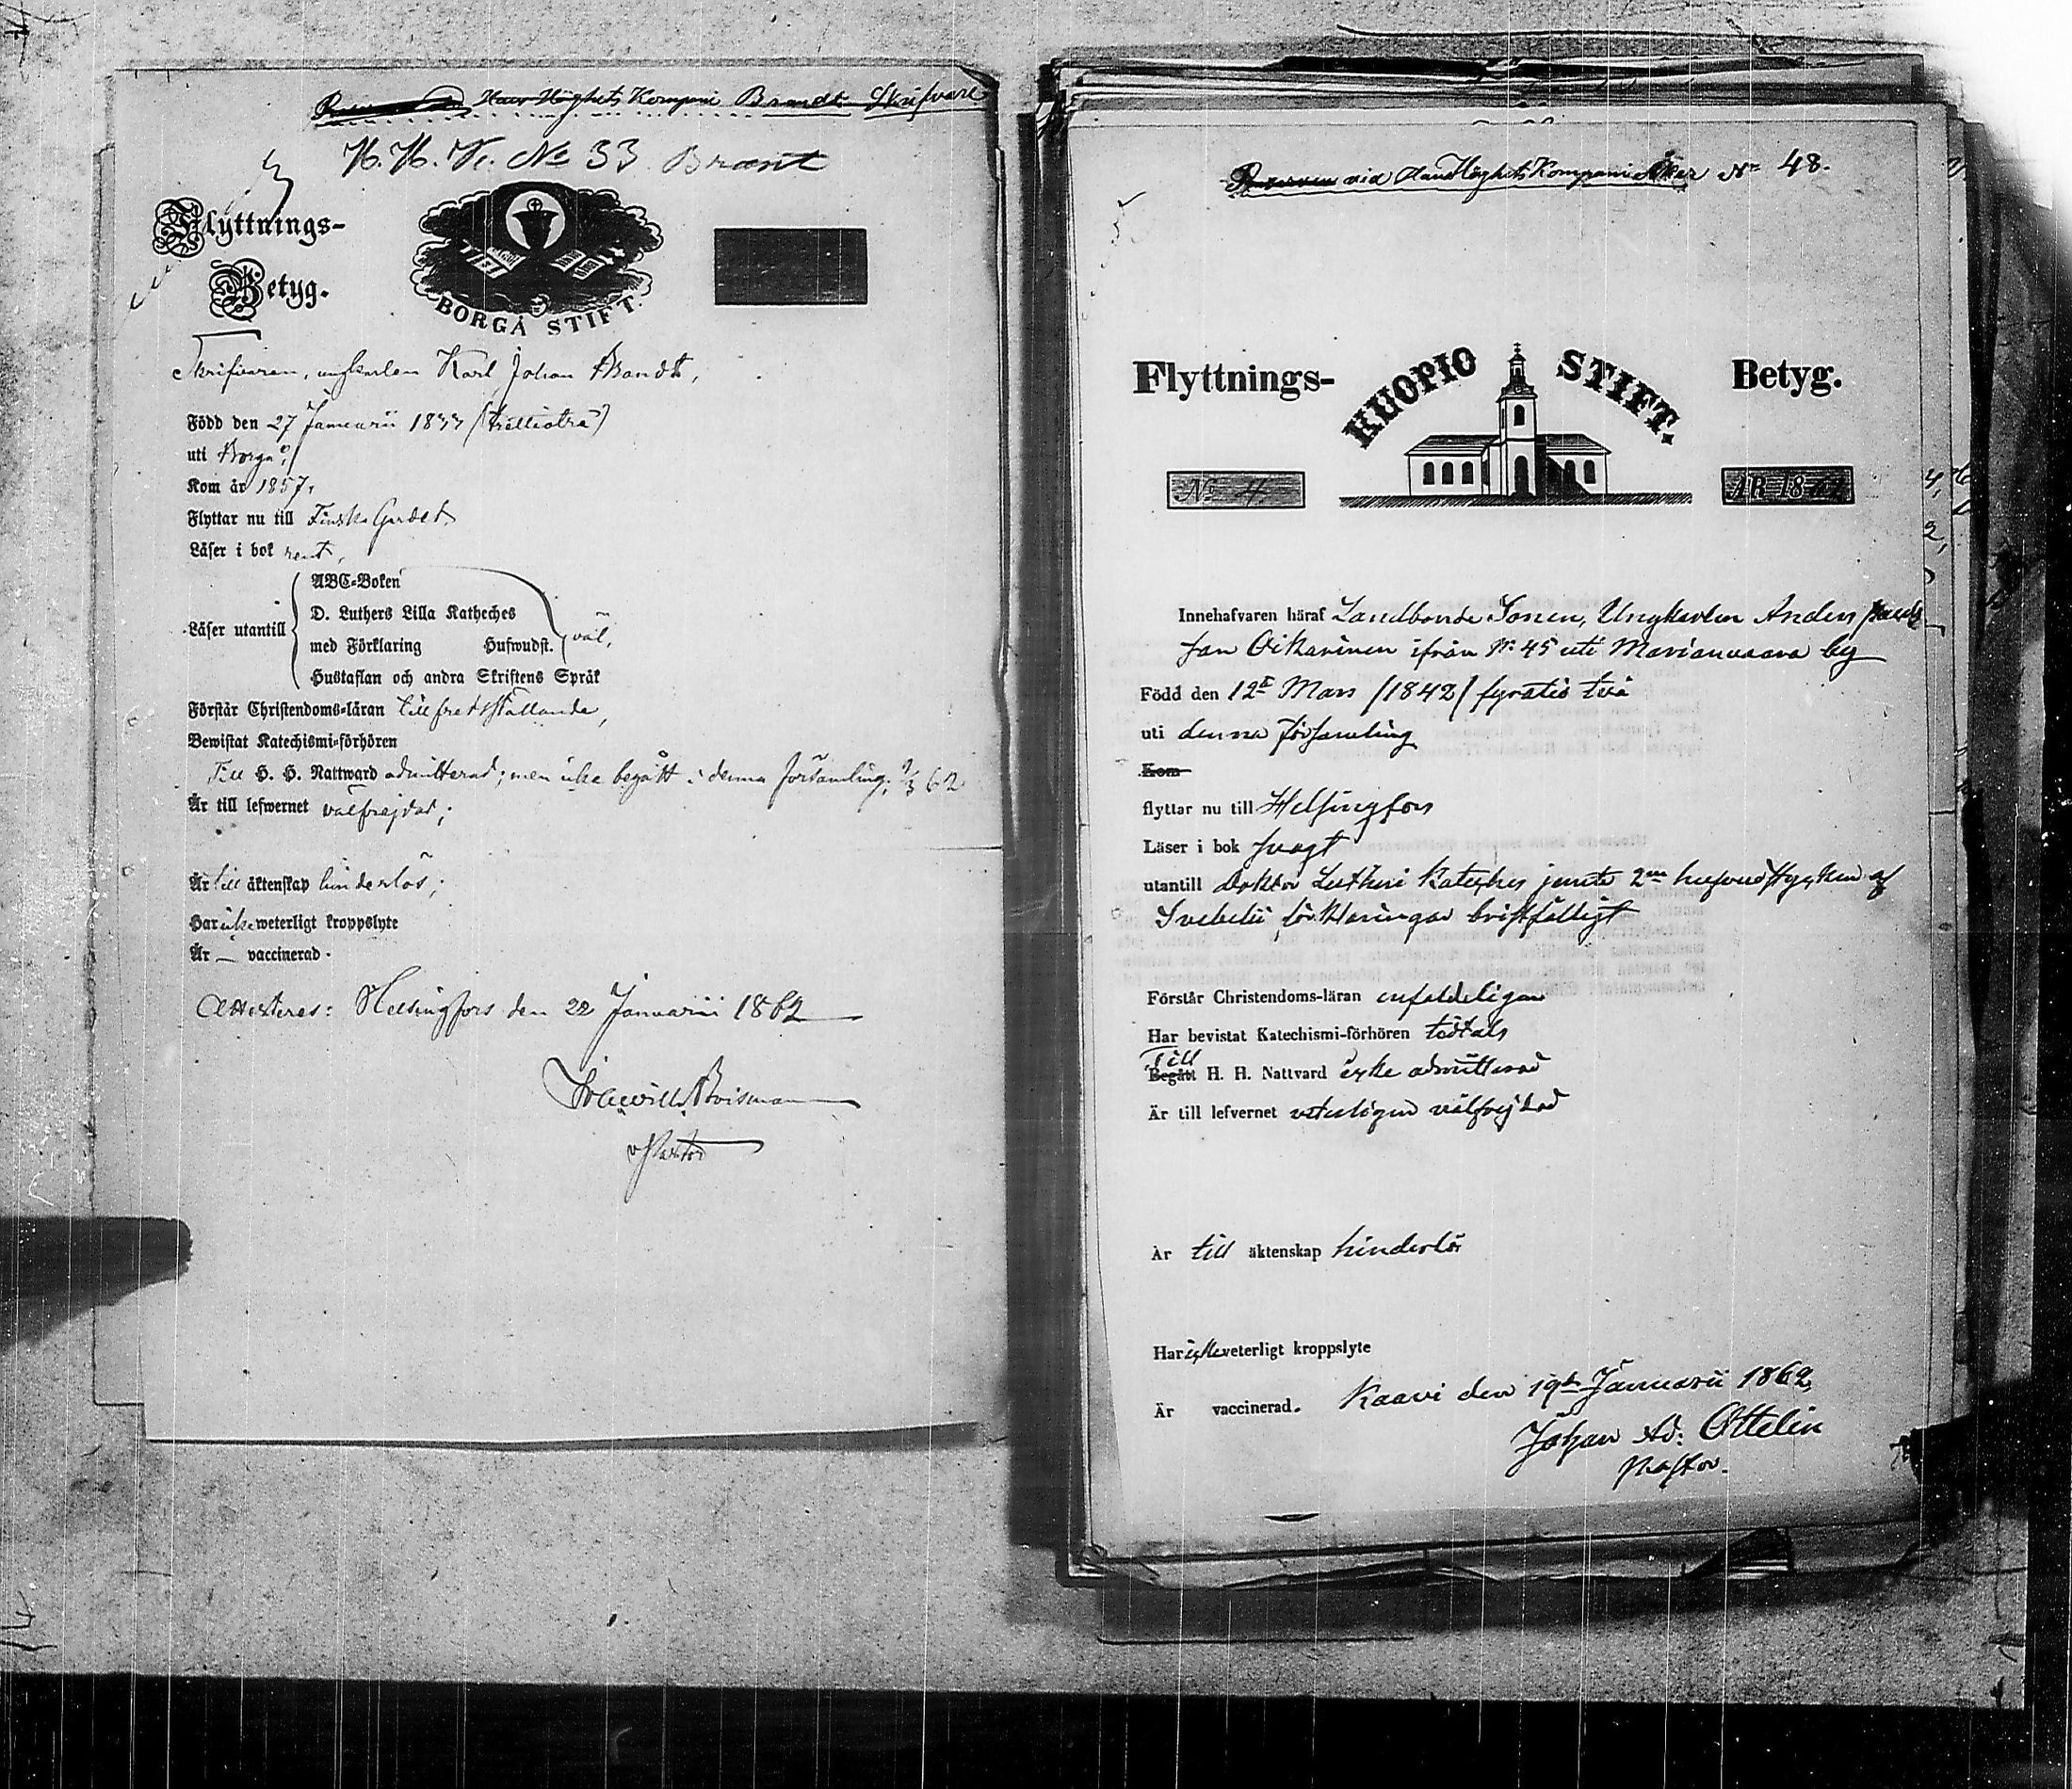 Hans Höghets Kompani Brandt Skrifvare
H. H. K. No 33 Brant
Flyttnings-
Betyg.
BORGÅ STIFT.
Skrifvaren, ungkarlen Karl Johan Brandt,
Född den 27 Januarii 1833 (trettiotre)
uti Borgå,
Kom år 1857,
Flyttar nu till Finska Gardet.
Läser i bok rent,
ABC-Boken
D. Luthers Lilla Katheches
Läser utantill
med Förklaring Hufwudst. väl,
Hustaflan och andra Skriftens Språk
Förstår Christendoms-läran tillfredsställande,
Bewistat Katechismi-förhören
Till H. H. Nattward admitterad; men icke begått i denna församling; 62
Är till lefwernet välfrejdad;
Är till äktenskap hinderlös;
Har icke weterligt kroppslyte
Är — vaccinerad.
Attesteras: Helsingfors den 22 Januarii 1862
Boisman
v Pastor
vid Hans Höghets Kompani No 48.
Flyttnings- KUOPIO STIFT. Betyg.
No 4 ÅR 18
Innehafvaren häraf Landbonde Sonen, Ungkarlen Anders
Oikarinen ifrån No 45 uti Marianvaara by
Född den 12te Mars /1842/ fyratio två
uti denna församling
Kom
flyttar nu till Helsingfors
Läser i bok svagt
utantill Doktor Lutheri Kateches jemte 2ne hufvudstycken af
Svebelii förklaringar bristfälligt
Förstår Christendoms-läran enfaldeligen
Har bevistat Katechismi-förhören
Till
Begått H. H. Nattvard icke admitterad
Är till lefvernet veterligen välfrejdad
Är till äktenskap hinderlös
Har icke veterligt kroppslyte
Är vaccinerad. Kaavi den 19de Januarii 1862,
Johan Ad: Ottelin
Pastor.